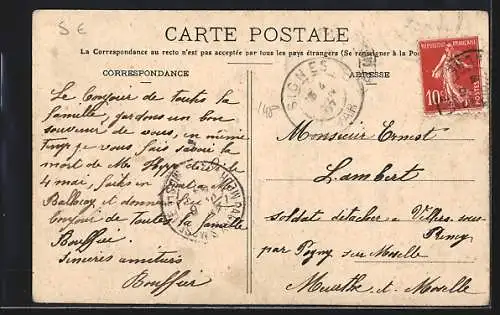 5 €
CARTE POSTALE
La Correspondance au recto n'est pas acceptée par tous les pays étrangers (Se renseigner à la Po
CORRESPONDANCE
ADRESSE
RÉPUBLIQUE FRANÇAISE
10
POSTES
SIGNES
VAR
Le bonjour de toute la
famille, gardons un bon
souvenir de vous, en même
temps je vous fais savoir la
mort de Mr
4 mai, faites en part à Mr
et donnez lui le
bonjour de toute la famille
Bouffier.
Sincères amitiés
Bouffier
Monsieur Ernest
Lambert
soldat détaché à
par Pagny sur Moselle
Meurthe et Moselle